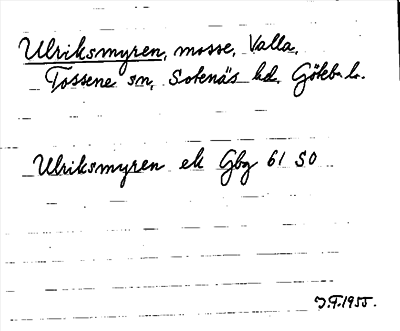 Ulriksmyren, mosse, Valla,
Tossene sn, Sotenäs hd. Göteb. l.
Ulriksmyren ek Gbg 61 SO
J.F. 1955.